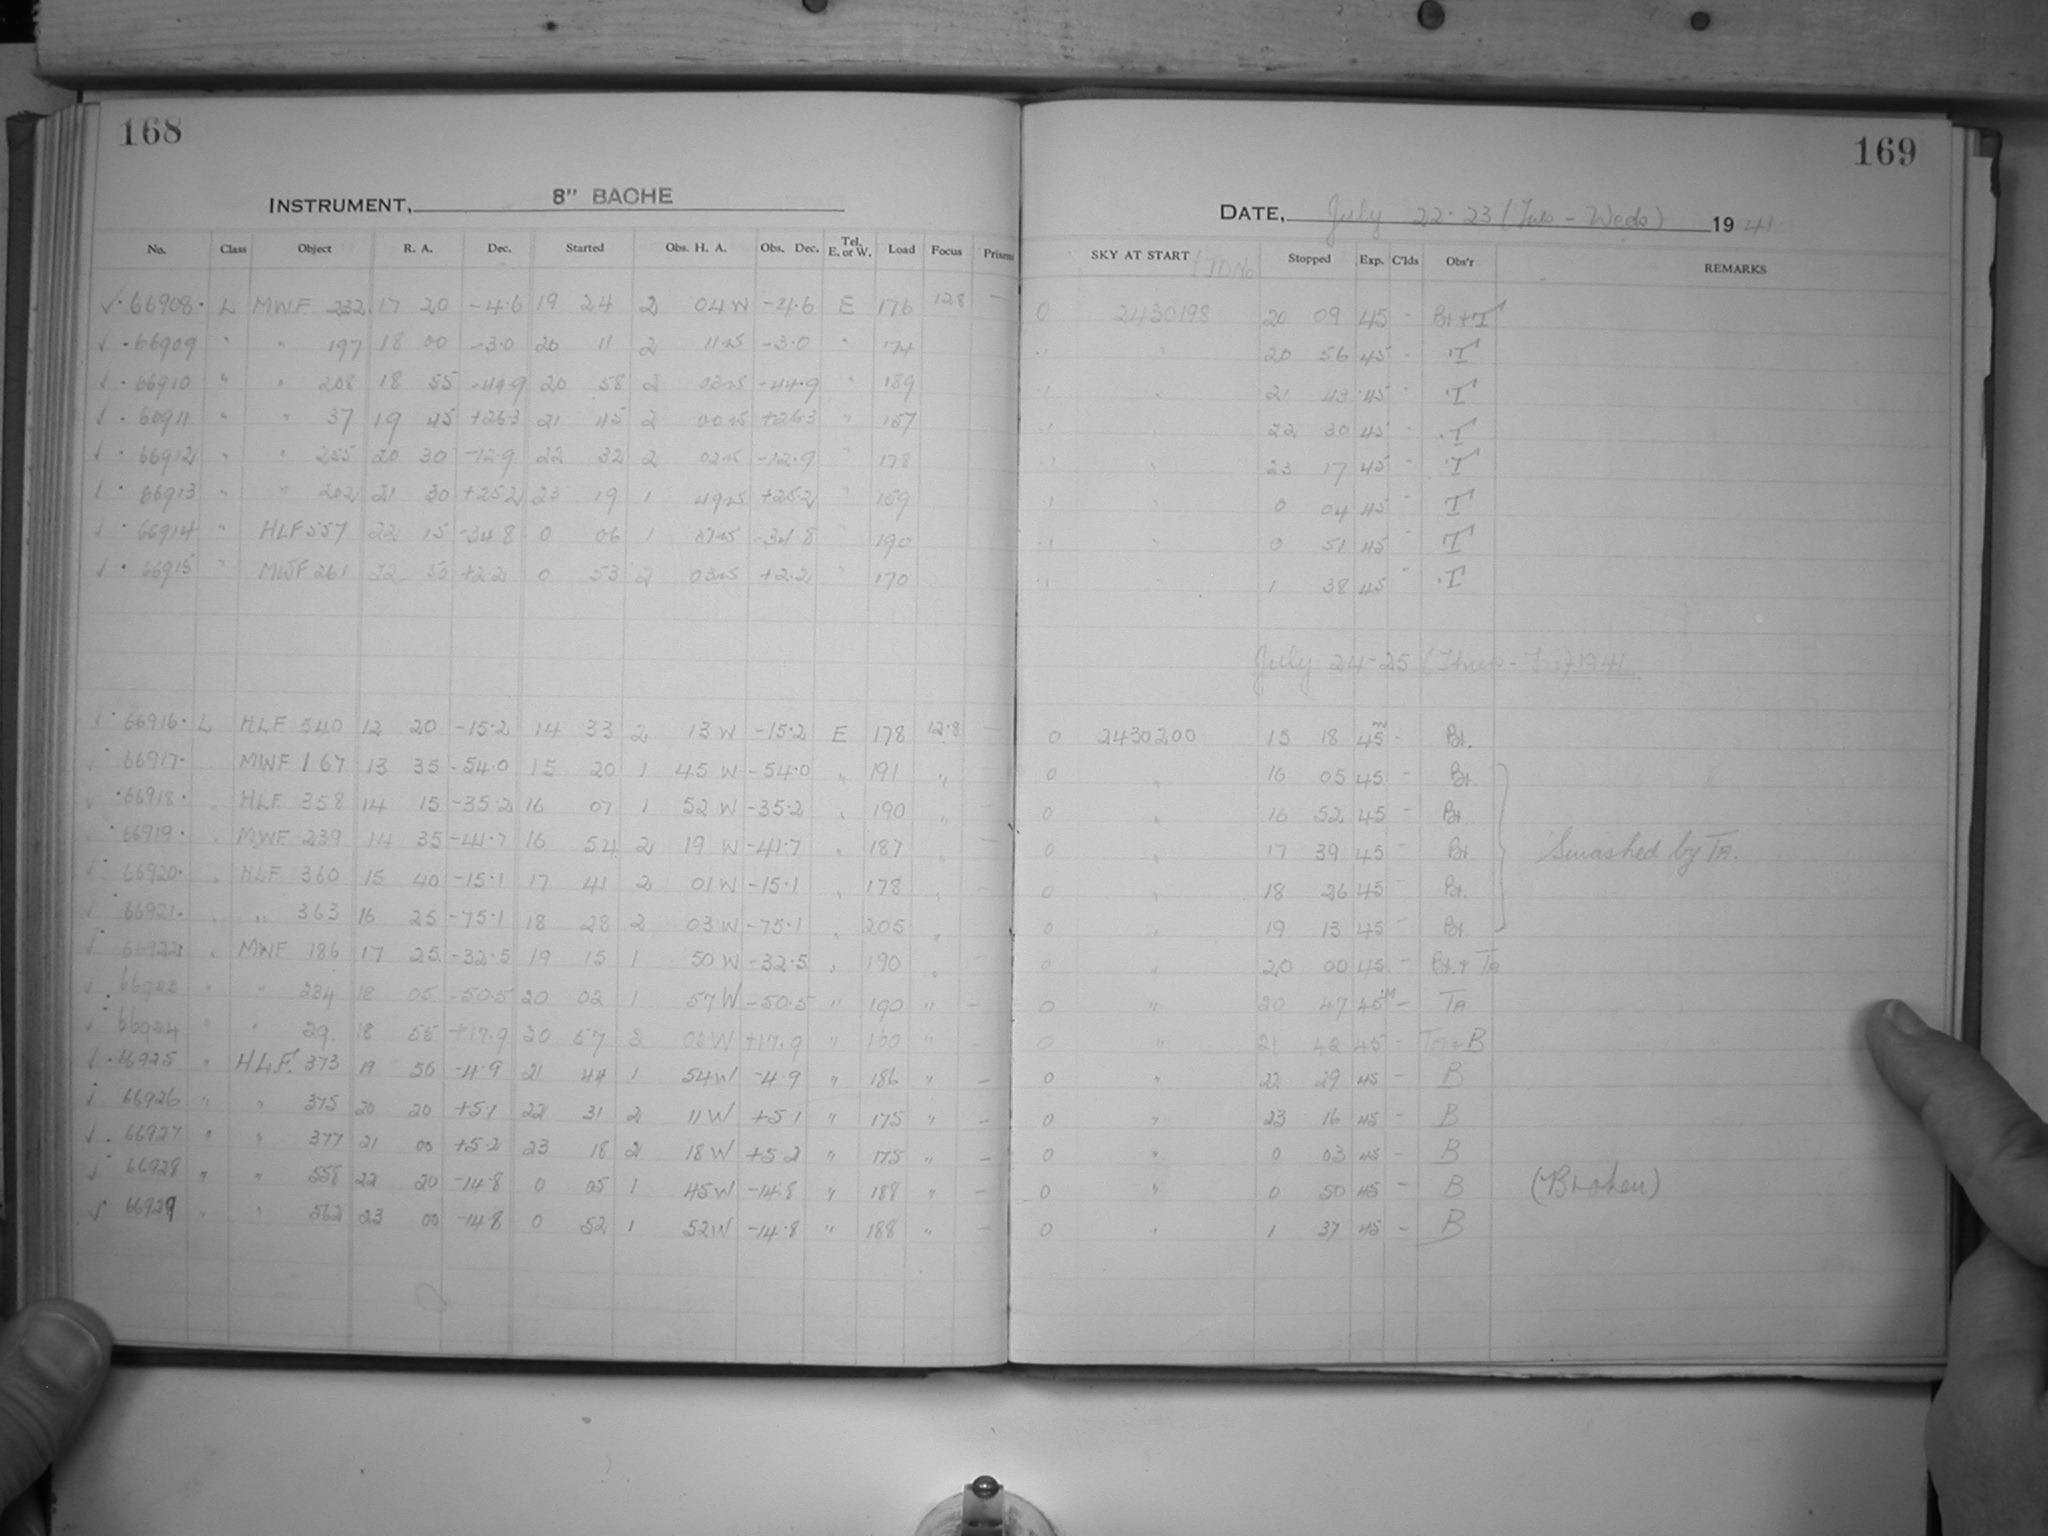 168
INSTRUMENT, 8" BACHE
No. Class Object R. A. Dec. Started Obs. H. A. Obs. Dec. Tel. E. or W. Load Focus Prism
66908 L MWF 232 17 20 -4.6 19 24 2 04 W -4.6 E 176 12.8 —
66909 " " 197 18 00 -3.0 20 11 2 11 -3.0 " 174
66910 " " 208 18 55 20 58 2 03 -44.9 " 189
66911 " " 37 19 45 +26.3 21 45 2 00 +26.3 " 157
66912 " " 255 20 30 -12.9 22 32 2 02 -12.9 " 178
66913 " " 202 21 30 +25.2 23 19 1 49 +25.2 " 159
66914 " HLF 557 22 15 -34.8 0 06 1 -34.8 " 190
66915 " MWF 261 22 50 +2.2 0 53 2 03 +2.2 " 170
66916 L HLF 540 12 20 -15.2 14 33 2 13 W -15.2 E 178 12.8 —
66917 MWF 167 13 35 -54.0 15 20 1 45 W -54.0 " 191 "
66918 HLF 358 14 15 -35.2 16 07 1 52 W -35.2 " 190 "
66919 MWF 239 14 35 -41.7 16 54 2 19 W -41.7 " 187 "
66920 HLF 360 15 40 -15.1 17 41 2 01 W -15.1 " 178 "
66921 " 363 16 25 -75.1 18 28 2 03 W -75.1 " 205 "
66922 MWF 186 17 25 -32.5 19 15 1 50 W -32.5 " 190 "
66923 " " 234 18 05 -50.5 20 02 1 57 W -50.5 " 190 " —
66924 " " 29 18 55 +17.9 20 57 2 02 W +17.9 " 160 " —
66925 " HLF 373 19 50 -4.9 21 44 1 54 W -4.9 " 186 " —
66926 " " 375 20 20 +5.1 22 31 2 11 W +5.1 " 175 " —
66927 " " 377 21 00 +5.2 23 18 2 18 W +5.2 " 175 " —
66928 " " 558 22 20 -14.8 0 05 1 45 W -14.8 " 188 " —
66929 " " 562 23 00 -14.8 0 52 1 52 W -14.8 " 188 " —
169
DATE, July 22-23 (Tues - Weds) 1941
SKY AT START Stopped Exp. C'lds Obs'r REMARKS
0 2430198 20 09 45 - Bt + T
" 20 56 45 - T
" 21 43 45 - T
" 22 30 45 - T
" 23 17 45 - T
" 0 04 45 - T
" 0 51 45 - T
" 1 38 45 - T
July 24-25 (Thurs - Fri) 1941
0 2430200 15 18 45 m - Bt.
0 " 16 05 45 - Bt.
0 " 16 52 45 - Bt.
0 " 17 39 45 - Bt Smashed by TA.
0 " 18 26 45 - Bt.
0 " 19 13 45 - Bt.
0 " 20 00 45 - Bt. + Ta
0 " 20 47 45 M - TA
0 " 21 42 45 - TA + B
0 " 22 29 45 - B
0 " 23 16 45 - B
0 " 0 03 45 - B
0 " 0 50 45 - B (Broken)
0 " 1 37 45 - B